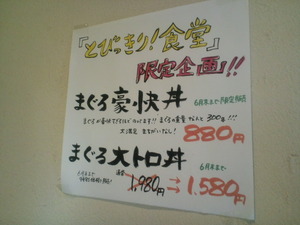 『とびっきり!食堂』
限定企画!!
まぐろ豪快丼 6月末まで限定販売
まぐろの重量 なんと300g!!?
大満足 まちがいなし! 880円
まぐろ大トロ丼 6月末まで
通常
1,980円 → 1,580円